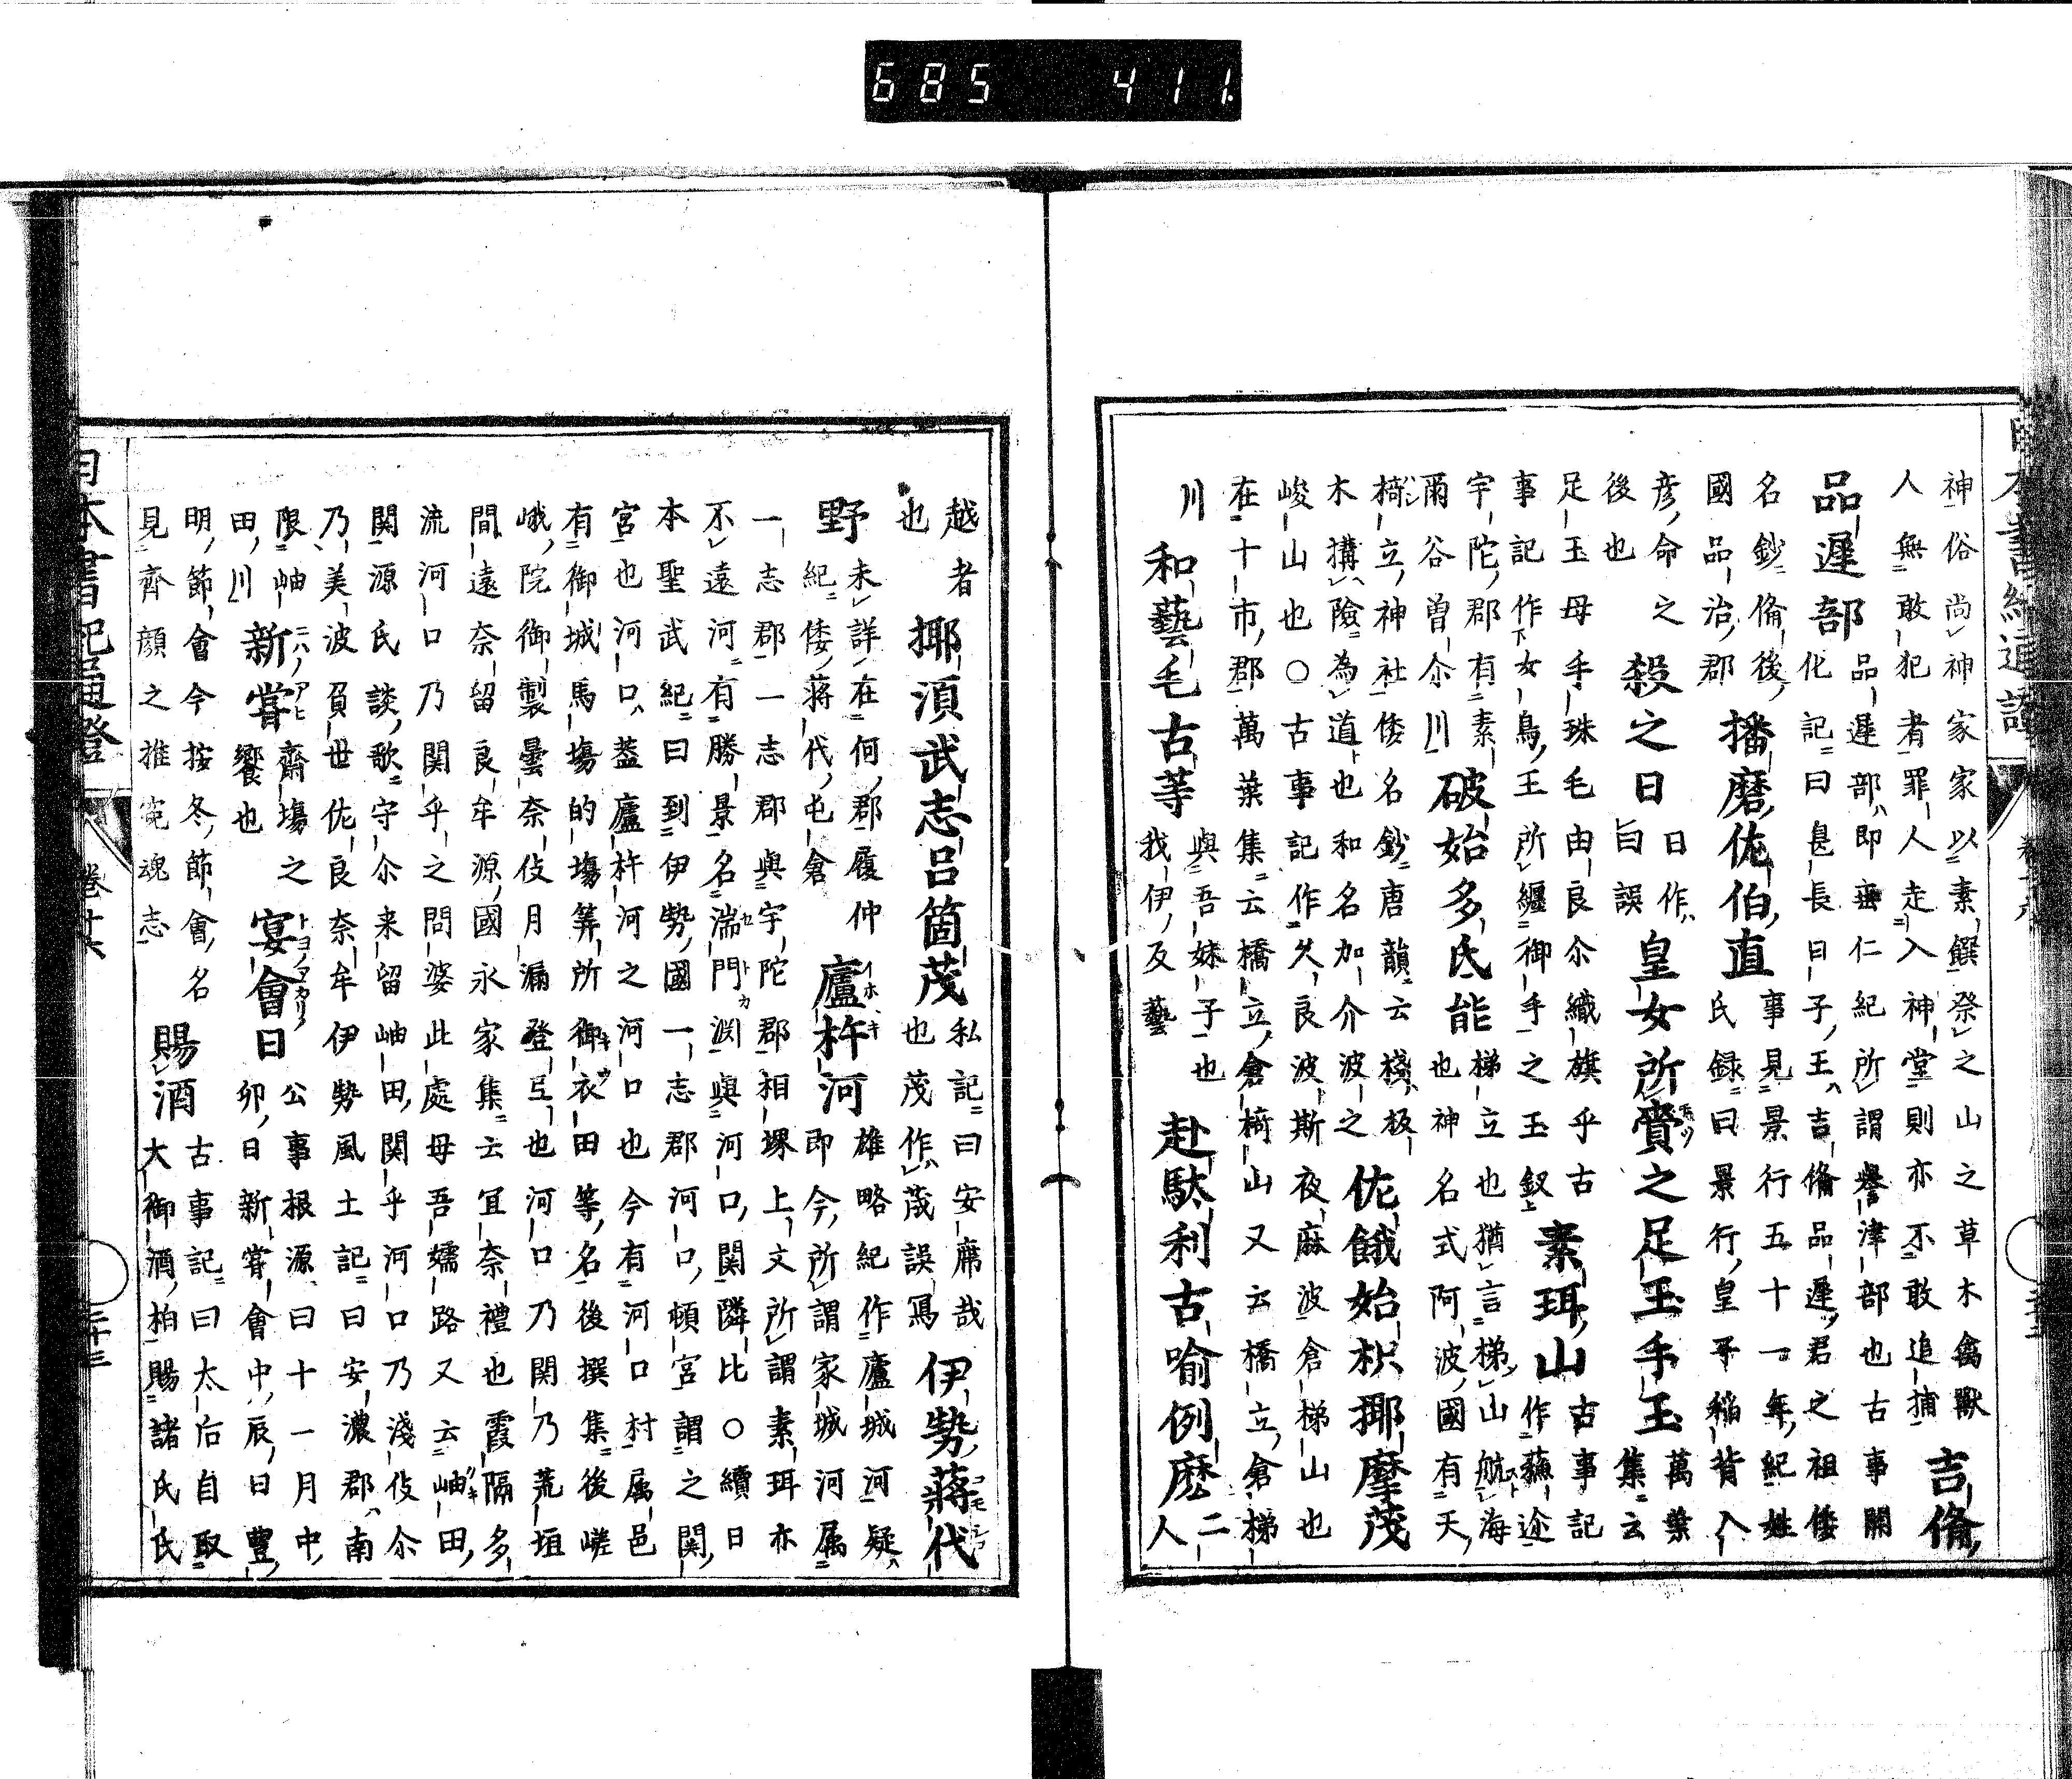 神俗尚神家家以素饌祭之山之草木禽獸
人無敢犯者罪人走入神堂則亦不敢追捕
吉備
品遲部
品遲部即垂仁紀所謂譽津部也古事開
化記曰是長日子王吉備品遲君之祖倭
名鈔備後
國品治郡
播磨佐伯直
事見景行五十一年紀姓
氏録曰景行皇子稲背入
彦命之
後也
殺之日
日作
曰誤
皇女所齎之足玉手玉
萬葉
集云
足玉母手珠毛由良尒織旗乎古
事記作女鳥王所纒御手之玉釵
素珥山
古事記
作蘓迩
宇陀郡有素
爾谷曽尒川
破始多氐能
梯立也猶言梯山航海
也神名式阿波國有天
椅立神社倭名鈔唐韻云棧板
木搆險為道也和名加介波之
佐餓始枳揶摩茂
峻山也○古事記作久良波斯夜麻波倉梯山也
在十市郡萬葉集云橋立倉椅山又云橋立倉梯
川
和藝毛古等
與吾妹子也
我伊反藝
赴駄利古喩例麼
二
人
越者
也
揶湏武志呂箇茂
私記曰安席哉
也茂作茷誤寫
伊勢蔣代
野
未詳在何郡履仲
紀倭蔣代屯倉
廬杵河
雄略紀作廬城河疑
即今所謂家城河属
一志郡一志郡與宇陀郡相堺上文所謂素珥亦
不遠河有勝景名湍門渕與河口関隣比○續日
本聖武紀曰到伊勢國一志郡河口頓宮謂之関
宮也河口盖廬杵河之河口也今有河口村属邑
有御城馬塲的塲筭所御衣田等名後撰集後嵯
峨院御製曇奈伎月漏登互也河口乃関乃荒垣
間遠奈留良牟源國永家集云冝奈禮也霞隔多
流河口乃関乎之問婆此處母吾嬬路又云岫田
関源氏談歌守尒来留岫田関乎河口乃淺伎尒
乃美波負世佐良奈牟伊勢風土記曰安濃郡南
限岫
田川
新嘗
齋塲之
饗也
宴會日
公事根源曰十一月中
卯日新嘗會中辰日豊
明節會今按冬節會名
見齊顔之推寃魂志
賜酒
古事記曰太后自取
大御酒柏賜諸氏氏
日本書紀通證
卷十六
二十三
685 411